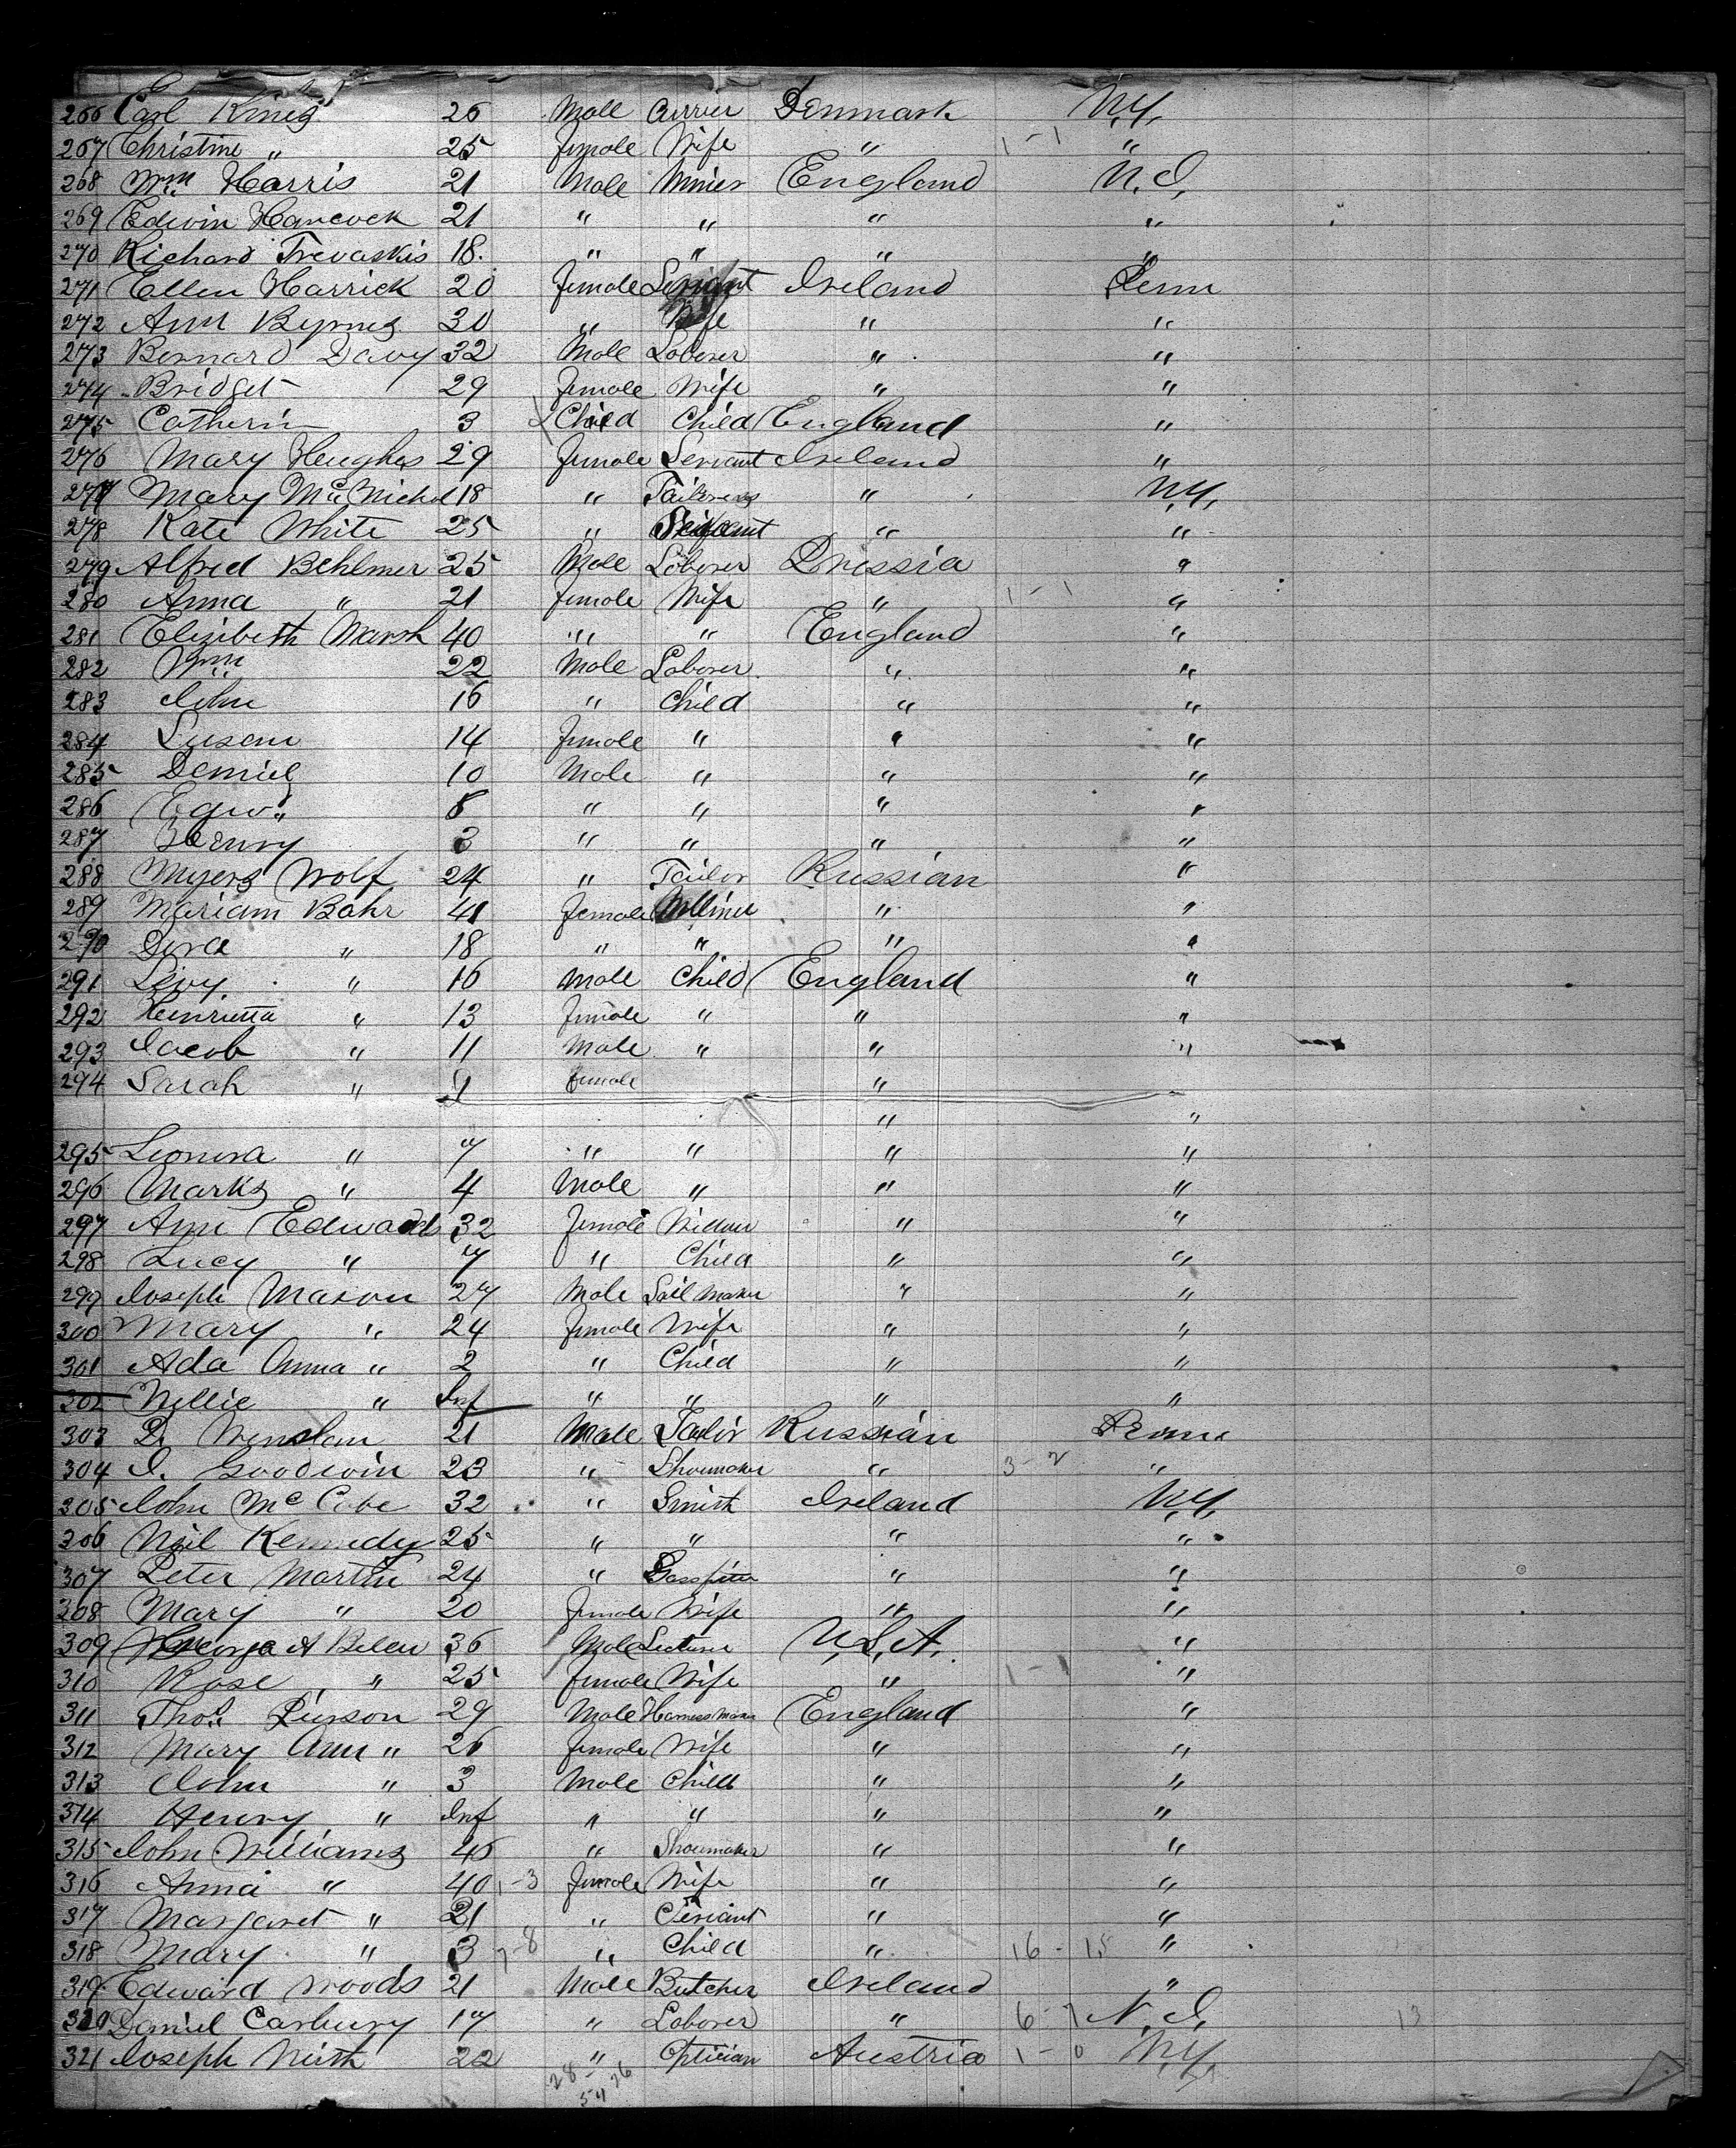 266 Carl King 26 Male Currier Denmark N.Y.
267 Christine " 25 Female Wife " 1-1 "
268 Wm Harris 21 Male Miner England N.J.
269 Edwin Hancock 21 " " " "
270 Richard Trevaskis 18 " " " "
271 Ellen Harrick 20 Female Servant Ireland Penn
272 Ann Byrnes 30 " Wife " "
273 Bernard Davy 32 Male Laborer " "
274 Bridget 29 Female Wife " "
275 Catherin 3 Child Child England "
276 Mary Hughes 29 Female Servant Ireland "
277 Mary McNichol 18 " Tailoress " N.Y.
278 Kate White 25 " Servant " "
279 Alfred Behlmer 25 Male Laborer Prussia "
280 Anna " 21 Female Wife " 1-1 "
281 Elizibeth Marsh 40 " " England "
282 Wm 22 Male Laborer " "
283 John 16 " Child " "
284 Susan 14 Female " " "
285 Daniel 10 Male " " "
286 Edwd 8 " " " "
287 Henry 3 " " " "
288 Myers Wolf 24 " Tailor Russian "
289 Mariam Bahr 41 Female Milliner " "
290 Dora " 18 " " " "
291 Levy " 16 Male Child England "
292 Henrietta " 13 Female " " "
293 Jacob " 11 Male " " "
294 Sarah " 9 Female "
" "
295 Leonora " 7 " " " "
296 Marks " 4 Male " " "
297 Ann Edwards 32 Female Widow " "
298 Lucy " 7 " Child " "
299 Joseph Mason 27 Male Sail Maker " "
300 Mary " 24 Female Wife " "
301 Ada Anna " 2 " Child " "
302 Nellie " Inf " " " "
303 21 Male Tailor Russian Penn
304 J. Goodwin 23 " Shoemaker " 3-2 "
305 John McCabe 32 " Smith Ireland N.Y.
306 Neil Kennedy 25 " " " "
307 Peter Martin 24 " Gassfitter " "
308 Mary " 20 Female Wife " "
309 George A 36 Male Lecturer U.S.A. "
310 Rose " 25 Female Wife " 1-1 "
311 Thos Pierson 29 Male Harness Maker England "
312 Mary Ann " 26 Female Wife " "
313 John " 3 Male Child " "
314 Henry " Inf " " " "
315 John Williams 45 " Shoemaker " "
316 Anna " 40 1-3 Female Wife " "
317 Margaret " 21 " Servant " "
318 Mary " 3 7-8 " Child " 16-15 "
319 Edward Woods 21 Male Butcher Ireland "
320 Daniel Carbury 17 " Laborer " 6-7 N.J. 13
321 Joseph 22 " Optician Austria 1-0 N.Y.
28-26
54